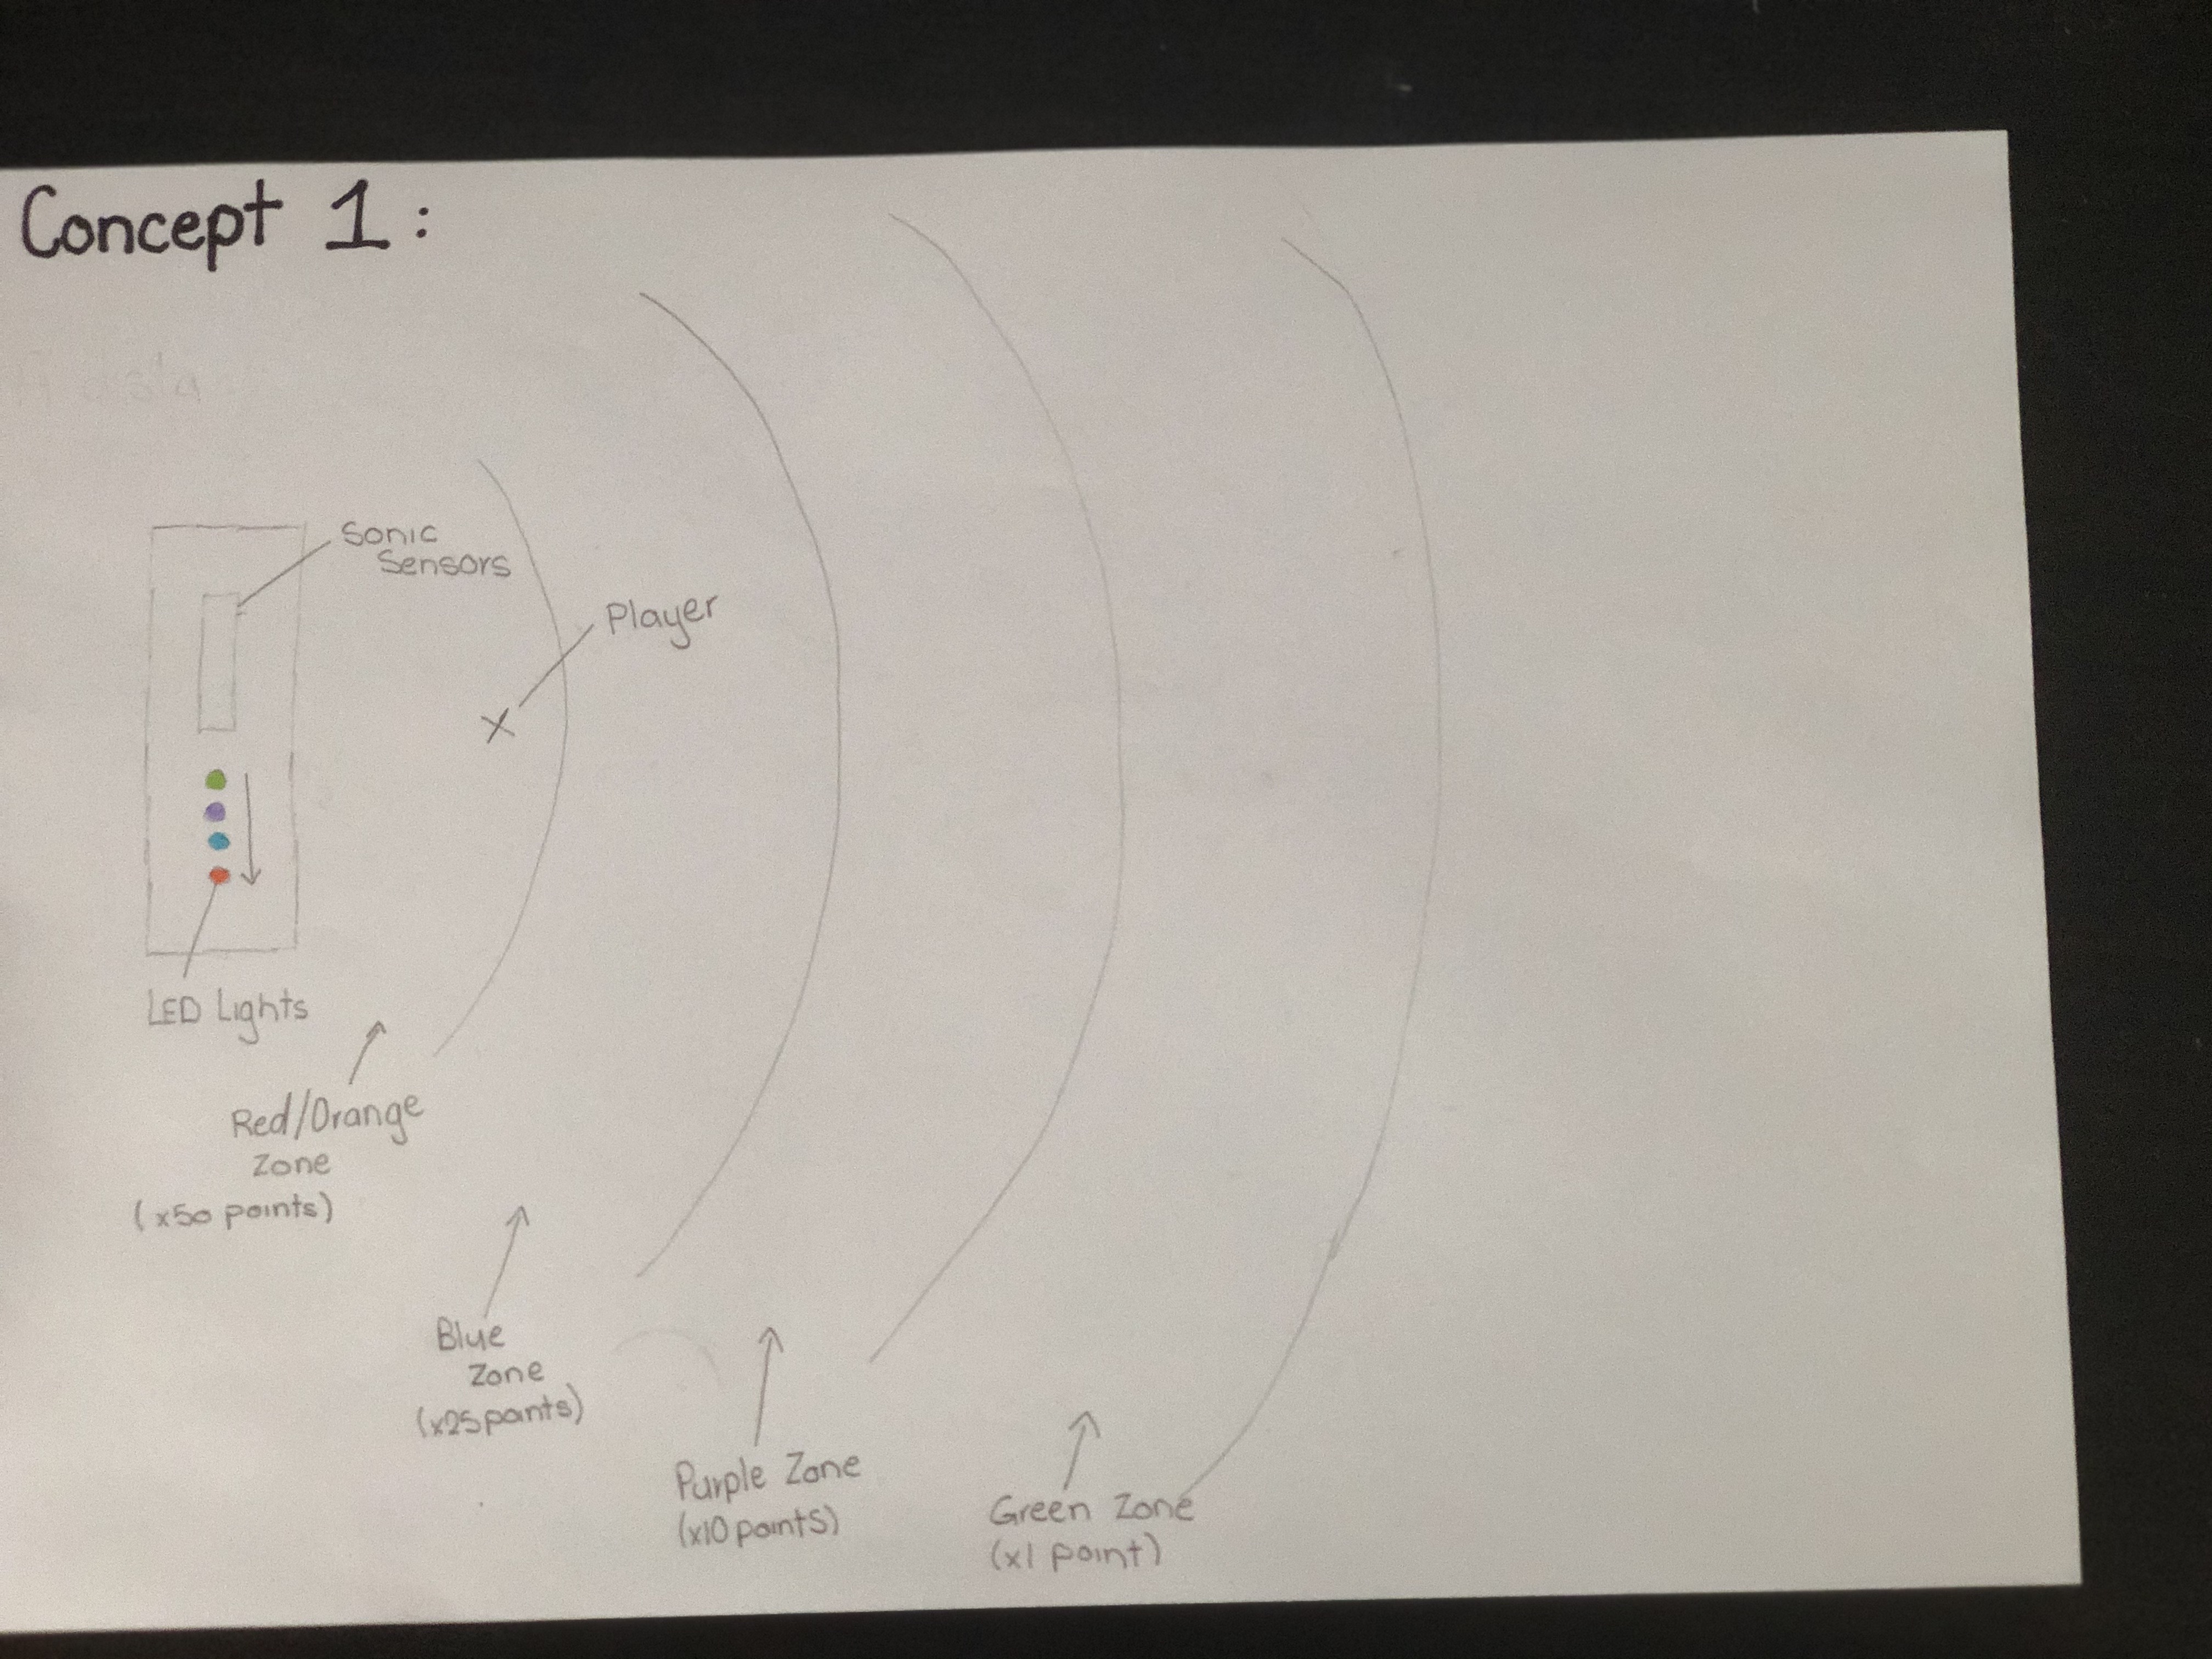 Concept 1:
Sonic
Sensors
Player
LED Lights
Red/Orange
Zone
(x50 points)
Blue
Zone
(x25 points)
Purple Zone
(x10 points)
Green Zone
(x1 point)